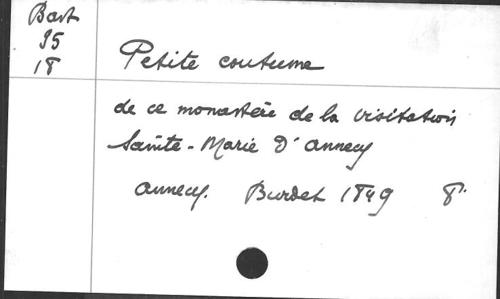 Bast
35
18
Petite coutume
de ce monastère de la Visitation
Sainte-Marie D'Annecy
Annecy. Burdet 1849 8°.